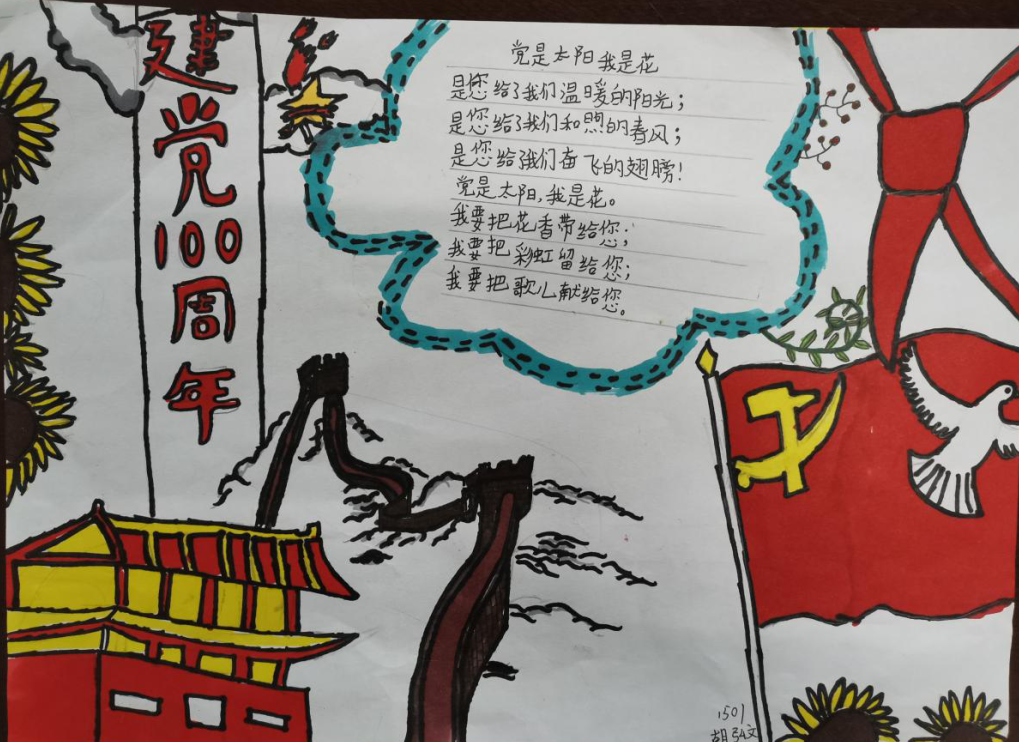 建党100周年
党是太阳我是花
是您给了我们温暖的阳光；
是您给了我们和煦的春风；
是您给了我们奋飞的翅膀！
党是太阳，我是花。
我要把花香带给您；
我要把彩虹留给您；
我要把歌儿献给您。
1501
胡弘文